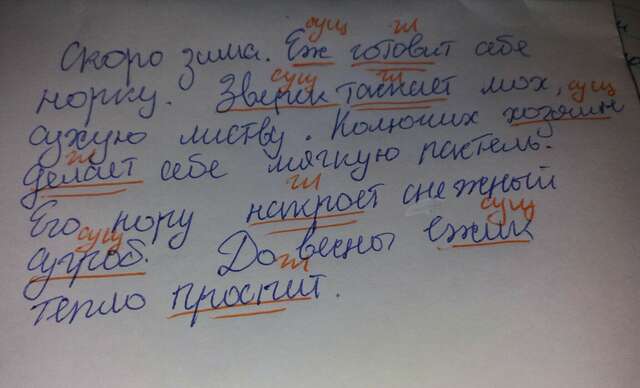 сущ гл
Скоро зима. Еж готовит себе
сущ гл
норку. Зверек таскает мох, сущ
сухую листву. Колючих хозяин
гл
делает себе мягкую пастель.
гл
Его нору накроет снежный
сущ сущ
сугроб. До весны ежик
гл
тепло проспит.